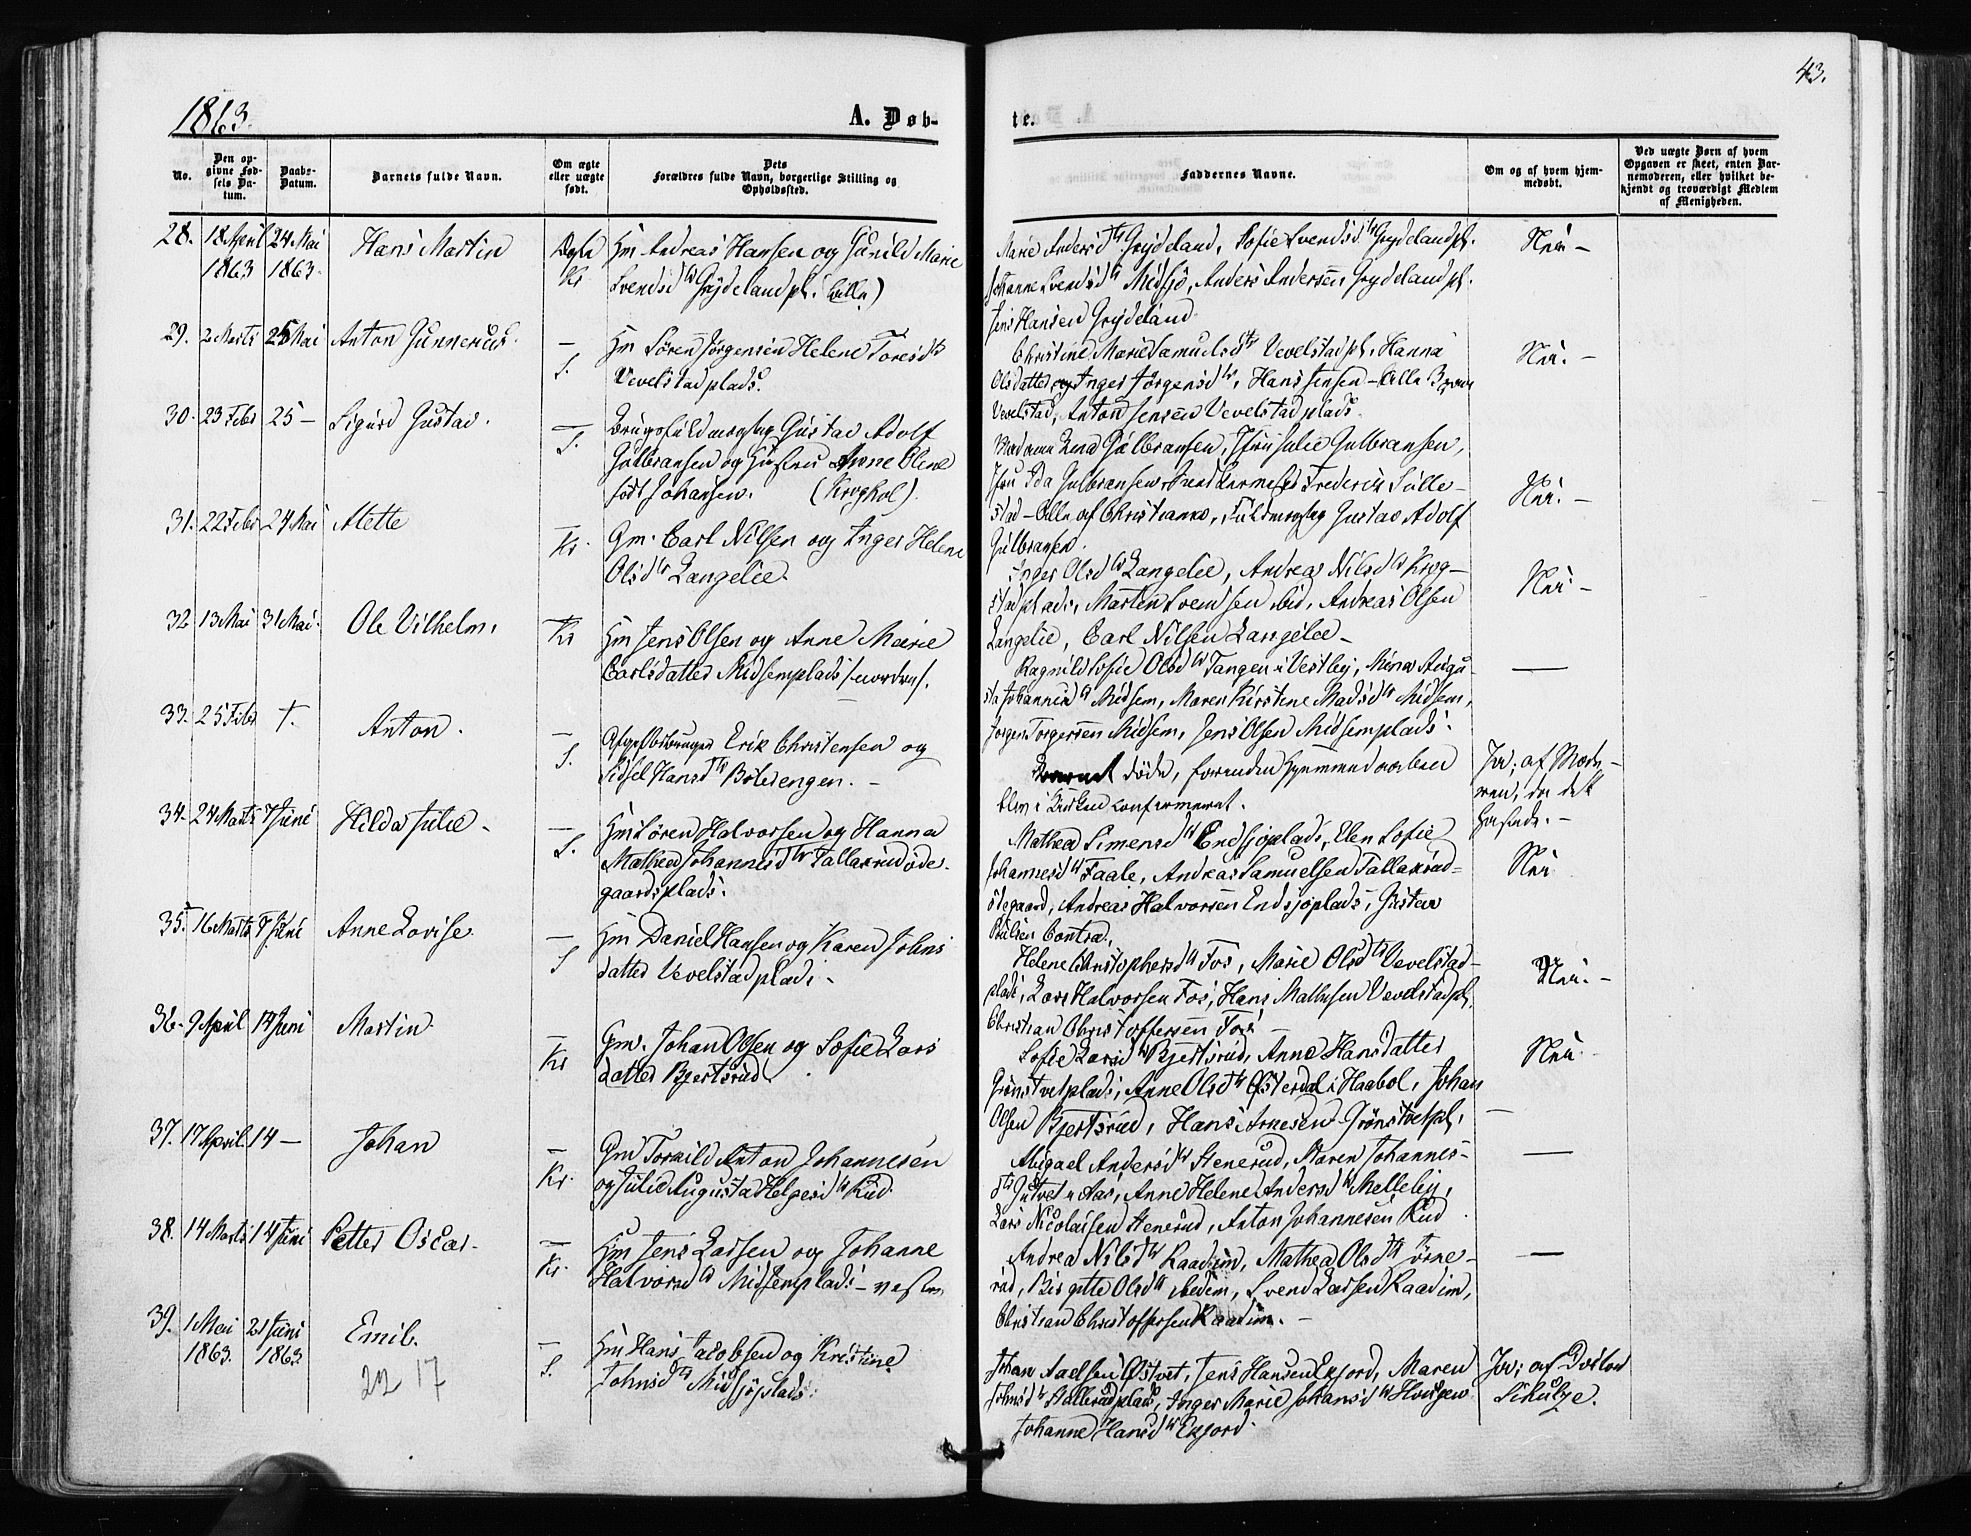 43.
1863.
A. Døb-
te.
No.
Den op-
givne Fød-
sels Da-
tum.
Daabs-
Datum.
Barnets fulde Navn.
Om ægte
eller uægte
født.
Dets
Forældres fulde Navn, borgerlige Stilling og
Opholdssted.
Faddernes Navne.
Om og af hvem hjem-
medøbt.
Ved uægte Børn af hvem
Opgaven er skeet, enten Bar-
nemoderen, eller hvilket be-
kjendt og troværdigt Medlem
af Menigheden.
28. 18 April 24 Mai Hans Martin Ægte Hm Andreas Hansen og Gunild Marie
1863 1863. Kr Svendsd tr Grydeland pl. (Lille)
Marie Andersd tr Grydeland, Sofie Svendsd tr Grydelandpl.
Johanne Svendsd tr Midsjø, Anders Andersen Grydelandpl.
Jens Hansen Grydeland.
Nei –
29. 2 Marts 25 Mai Anton Gunnerus. – S. Hm Søren Jørgensen Helene Toresd tr
Vevelstadplads.
Christine Marie Samuelsd tr Vevelstadpl. Hanna
Olsdatter og Inger Jørgensd tr, Hans Jensen – alle
Vevelstad, Anton Jensen Vevelstadplads.
Nei. –
30. 23 Febr 25 – Sigurd Gustav. – S. Brugsfuldmægtig Gustav Adolf
Gulbransen og Hustru Anne Oline
født Johansen. (Kroghol).
Madame Lena Gulbransen, Jfru Julie Gulbransen,
Jfru Ida Gulbransen, Frederik Sølle-
stad – Alle af Christiania, Fuldmægtig Gustav Adolf
Gulbransen.
Nei. –
31. 22 Febr 24 Mai Mette – Kr. Gm. Carl Nilsen og Inger Helene
Olsd tr Langelie.
Inger Olsd tr Langelie, Andrea Nilsd tr Krog-
stadplads, Morten Svendsen ibid, Andreas Olsen
Langelie, Carl Nilsen Langelie –
Nei –
32. 13 Mai 31 Mai. Ole Vilhelm. – Kr Hm Jens Olsen og Anne Marie
Carlsdatter Midsemplads /: nordre /.
Ragnild Sofie Olsd tr Tangen i Vestby, Mina Augu-
sta Johannesd tr Midsem, Maren Kirstine Madsd tr Midsem,
Jørgen Torgersen Midsem, Jens Olsen Midsemplads.
—
33. 25 Febr †. Anton. – S. Erik Christensen og
Sidsel Hansd tr Bølerengen. –
Barnet døde, forinden Hjemmedaaben
blev i Kirken confirmeret.
Ja; af Mode-
ren, da det
hastede. –
34. 24 Marts 7 Juni Hilda Julie. – S. Hm Søren Halvorsen og Hanna
Mathea Johannesd tr Tallaksrudøde-
gaardsplads.
Mathea Simensd tr Endsjøplads, Elen Sofie
Johannesd tr Faale, Andreas Samuelsen Tallaksrud-
ødegaard, Andreas Halvorsen Endsjøplads, Gustav
Poulsen Contra.
Nei
35. 16 Marts 7 Juni Anne Lovise. – S Hm Daniel Hansen og Karen Johns
datter Vevelstadplads.
Helene Christophersd tr Fos, Marie Olsd tr Vevelstad-
plads, Lars Halvorsen Fos, Hans Mathisen Vevelstadpl,
Christian Christoffersen Fos. –
Nei. –
36. 9 April 14 Juni Martin. – Kr Gm. Johan Olsen og Sofie Lars
datter Bjertsrud.
Sofie Larsd tr Bjertsrud, Anne Hansdatter
Grønstvetplads, Anne Olsd tr Østerdal i Haabøl, Johan
Olsen Bjertsrud, Hans Arnesen Grønstvetpl.
Nei.
37. 17 April 14 – Johan – Kr. Gm Torkild Anton Johannesen
og Julie Augusta Helgesd tr Rud.
Abigael Andersd tr Stenerud, Karen Johannes-
d tr Jutvet i Aas, Anne Helene Andersd tr Melleby,
Lars Nicolaisen Stenerud, Anton Johannesen Rud.
—
38. 14 Marts 14 Juni Petter Oscar. – Kr. Hm Jens Larsen og Johanne
Halvorsd tr Midsemplads – vestre
Andrea Nilsd tr Kaadim, Mathea Olsd tr Tørne-
rud, Birgitte Olsd tr ibidem, Svend Larsen Kaadim,
Christian Christoffersen Kaadim. –
—
39. 1 Mai 21 Juni Emil. – S. Hm Hans Jacobsen og Kristine
1863. 1863 Johnsd tr Midsjøplads.
22 17
Johan Axelsen Østvet, Jens Hansen Exfjord, Maren
Johnsd tr Hallerudplads, Inger Marie Johansd tr Haugen
Johanne Hansd tr Exjord.
Ja; af Doctor
Schulze.